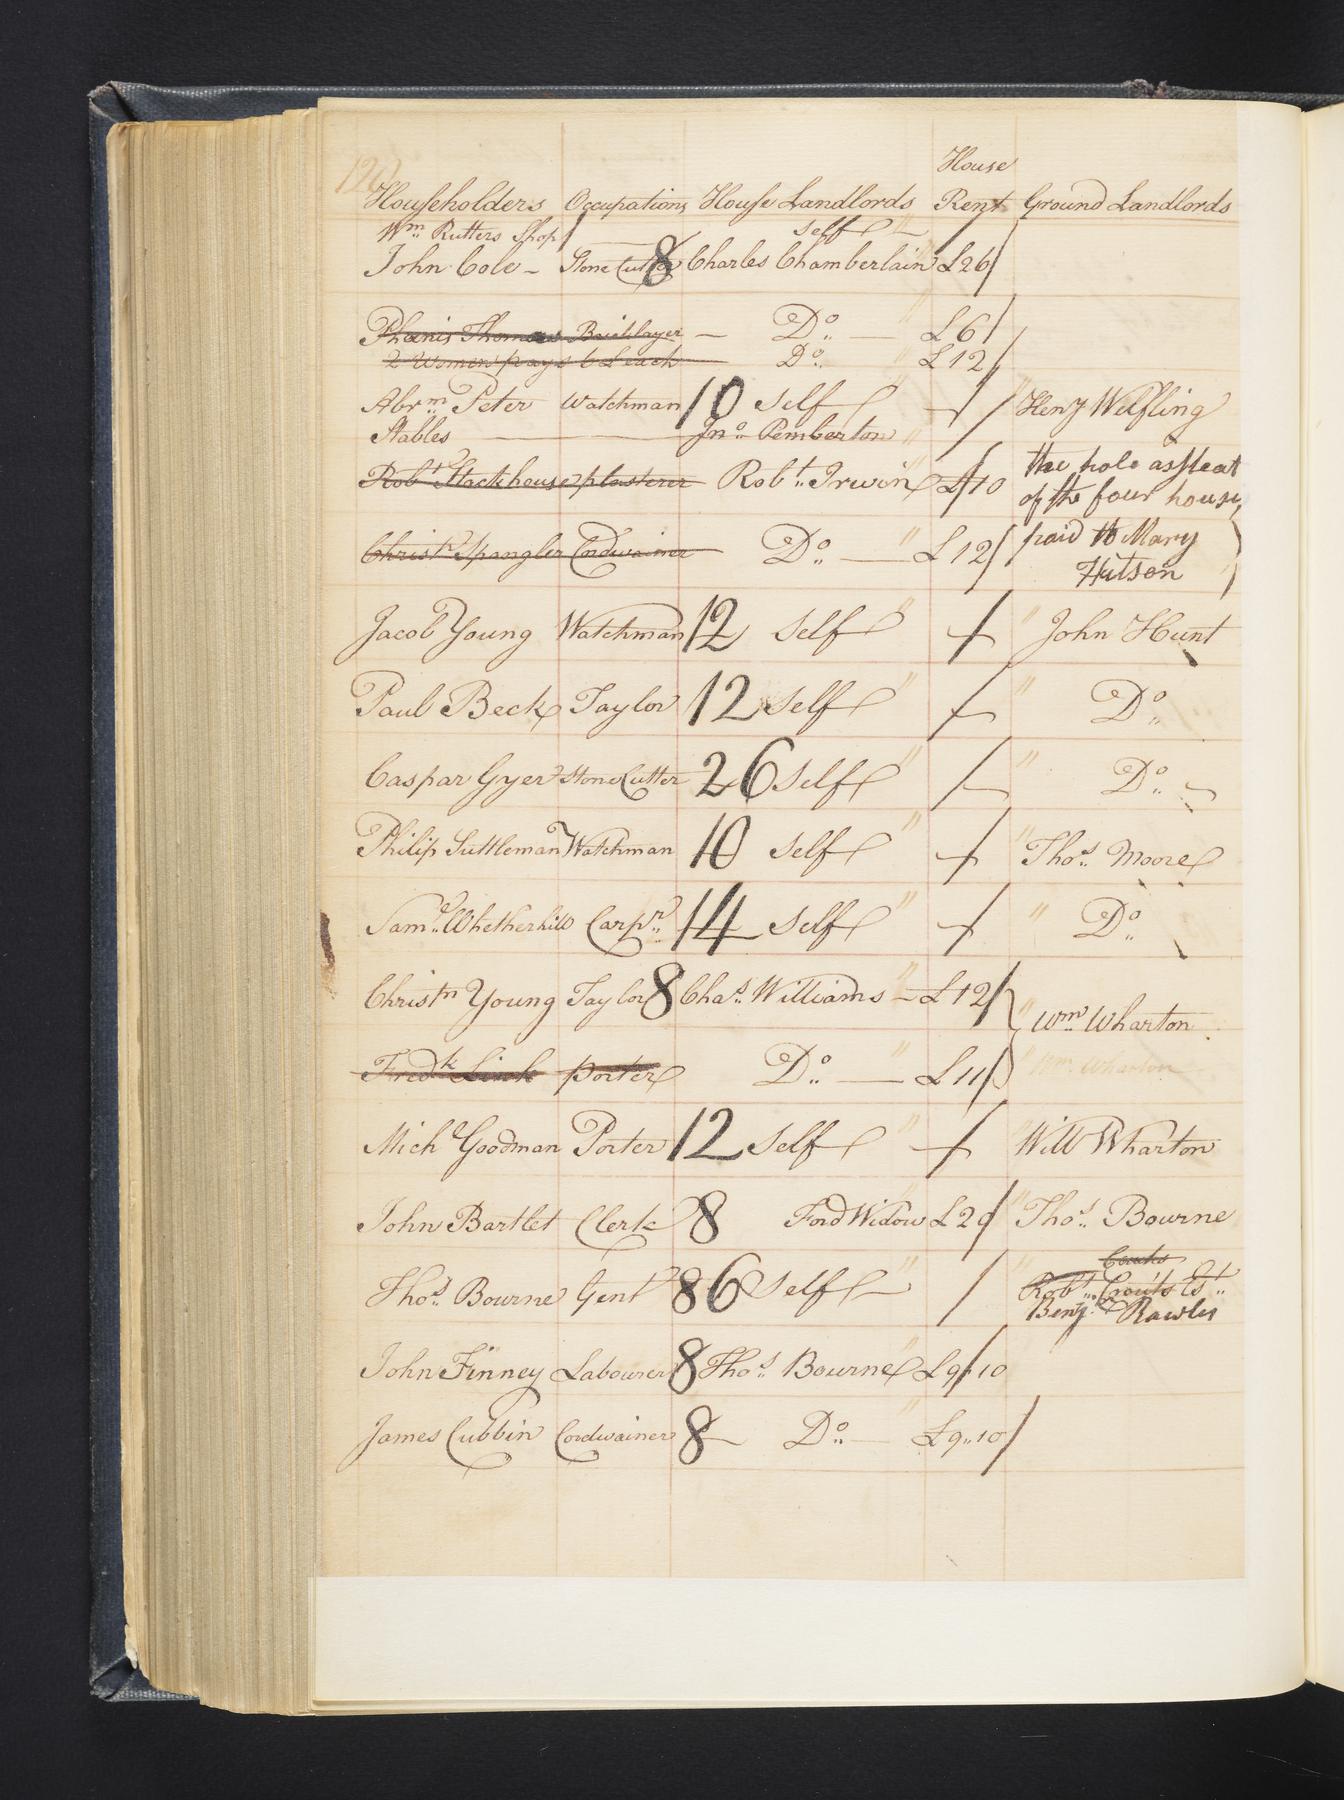 120
House
Householders Occupations House Landlords Rent Ground Landlords
Wm. Rutters Shop self
John Cole - Stone Cutter 8 Charles Chamberlain £26
Phœnix Thomas Bricklayer — Do. — £6
2 Women pays 6£ each Do. £12
Abrm. Peter Watchman 10 Self Heny Welfling
Stables — Jno. Pemberton
Robt. Stackhouse plasterer Robt. Irwin £10 the hole assteat
of the four house,
Christr. Spangler Cordwainer Do. — £12 paid to Mary
Hutson
Jacob Young Watchman 12 Self John Hunt
Paul Beck Taylor 12 Self Do.
Caspar Gyer Stone Cutter 26 Self Do.
Philip Suttleman Watchman 10 Self Thos. Moore
Saml. Whetherhill Carpr. 14 Self Do.
Christn Young Taylor 8 Chas. Williams — £12
Wm. Wharton
Fredk Link porter Do. — £11 Wm. Wharton
Michl Goodman Porter 12 Self Will Wharton
John Bartlet Clerk 8 Ford Widow £20 Thos. Bourne
Thos. Bourne Gent 86 Self Robt. Crouts Est.
Benj. Rawles
John Finney Labourer 8 Thos. Bourne £9/10
James Cubbin Cordwainer 8 — Do. — £9..10